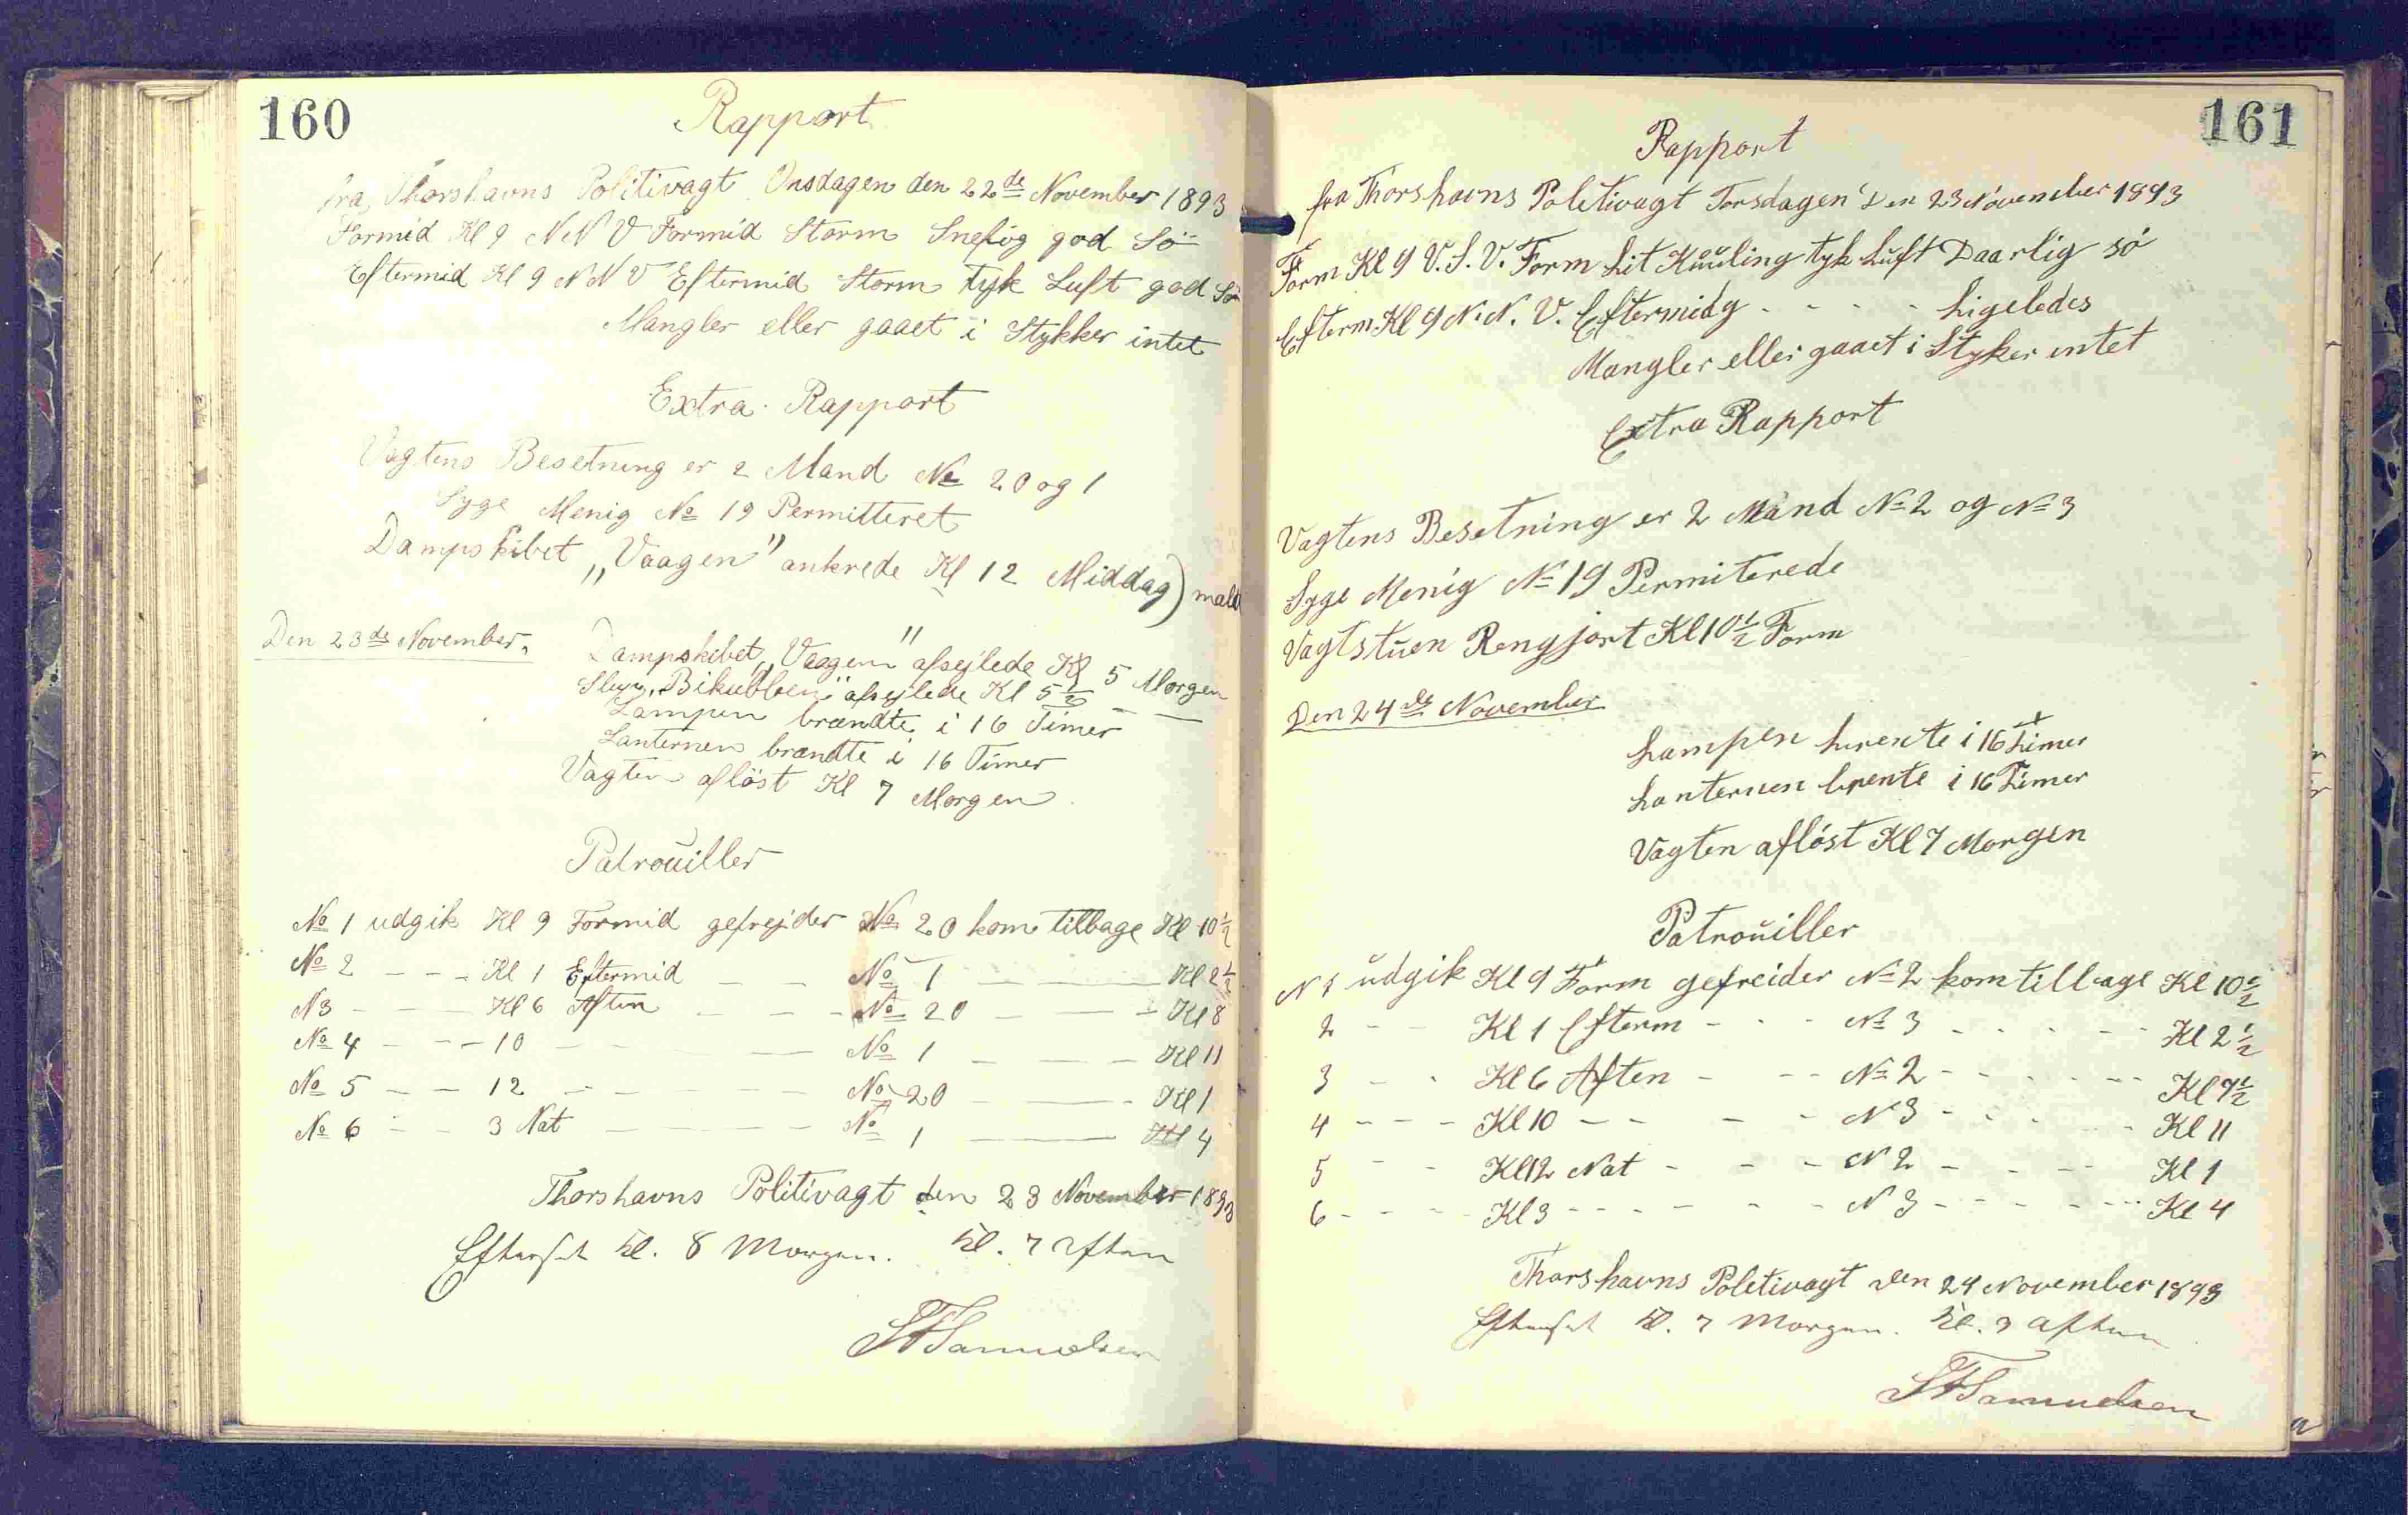 160
Rapport
fra Thorshavns Politivagt Onsdagen den 22de November 1893
Formid Kl 9 NNV Formid Storm Snefog god Sö
Eftermid Kl 9 NNV Eftermid Storm tyk Luft god Sö
Mangler eller gaaet i Stykker intet
Extra Rapport
Vagtens Besetning er 2 Mand No 20 og 1
Syge Menig No 19 Permitteret
Dampskibet „Vaagen" ankrede Kl 12 Middag)
Den 23de November.
Dampskibet „Vaagen" afsejlede Kl 5 Morgen
"Bikubben" afsejlede Kl 5 1/2 — —
Lampen brændte i 16 Timer
Lanternen brændte i 16 Timer
Vagten aflöst Kl 7 Morgen
Patrouiller
No 1 udgik Kl 9 Formid gefrejder No 20 kom tilbage Kl 10 1/2
No 2 - - - Kl 1 Eftermid — — No 1 — Kl 2 1/2
N3 - — Kl 6 Aften — — - No 20 — — - Kl 8
No 4 - - - 10 — — No 1 — — - Kl 11
No 5 — — 12 — — — No 20 — - Kl 1
No 6 - - 3 Nat — — — No 1 — Kl 4
Thorshavns Politivagt den 23 November 1893
Efterset Kl. 8 Morgen. Kl. 7 Aften
Samuelsen
161
Rapport
fra Thorshavns Politivagt Torsdagen Den 23 November 1893
Form Kl 9 V.S.V. Form Lit Kuuling tyk Luft Daarlig sö
Efterm Kl 9 N.N.V. Eftermidg - - - - Ligeledes
Mangler eller gaaet i Styker intet
Extra Rapport
Vagtens Besetning er 2 Mand No 2 og No 3
Syge Menig No 19 Permiterede
Vagtstuen Rengjort Kl 10 1/2 Form
Den 24de November
Lampen brente i 16 Timer
Lanternen brente i 16 Timer
Vagten aflöst Kl 7 Morgen
Patrouiller
N 1 udgik Kl 9 Form gefreider No 2 kom tilbage Kl 10 1/2
2 - - Kl 1 Efterm - - - No 3 - - - - - Kl 2 1/2
3 - - Kl 6 Aften - - - No 2 - - - - - Kl 7 1/2
4 - - - Kl 10 - - - - N 3 - - - - Kl 11
5 - - Kl 12 Nat - - - N 2 - - - - Kl 1
6 - - - - Kl 3 - - - - - - N 3 - - - - - Kl 4
Thorshavns Poletivagt den 24 November 1893
Efterset Kl. 7 Morgen. Kl. 7 Aften
Samuelsen